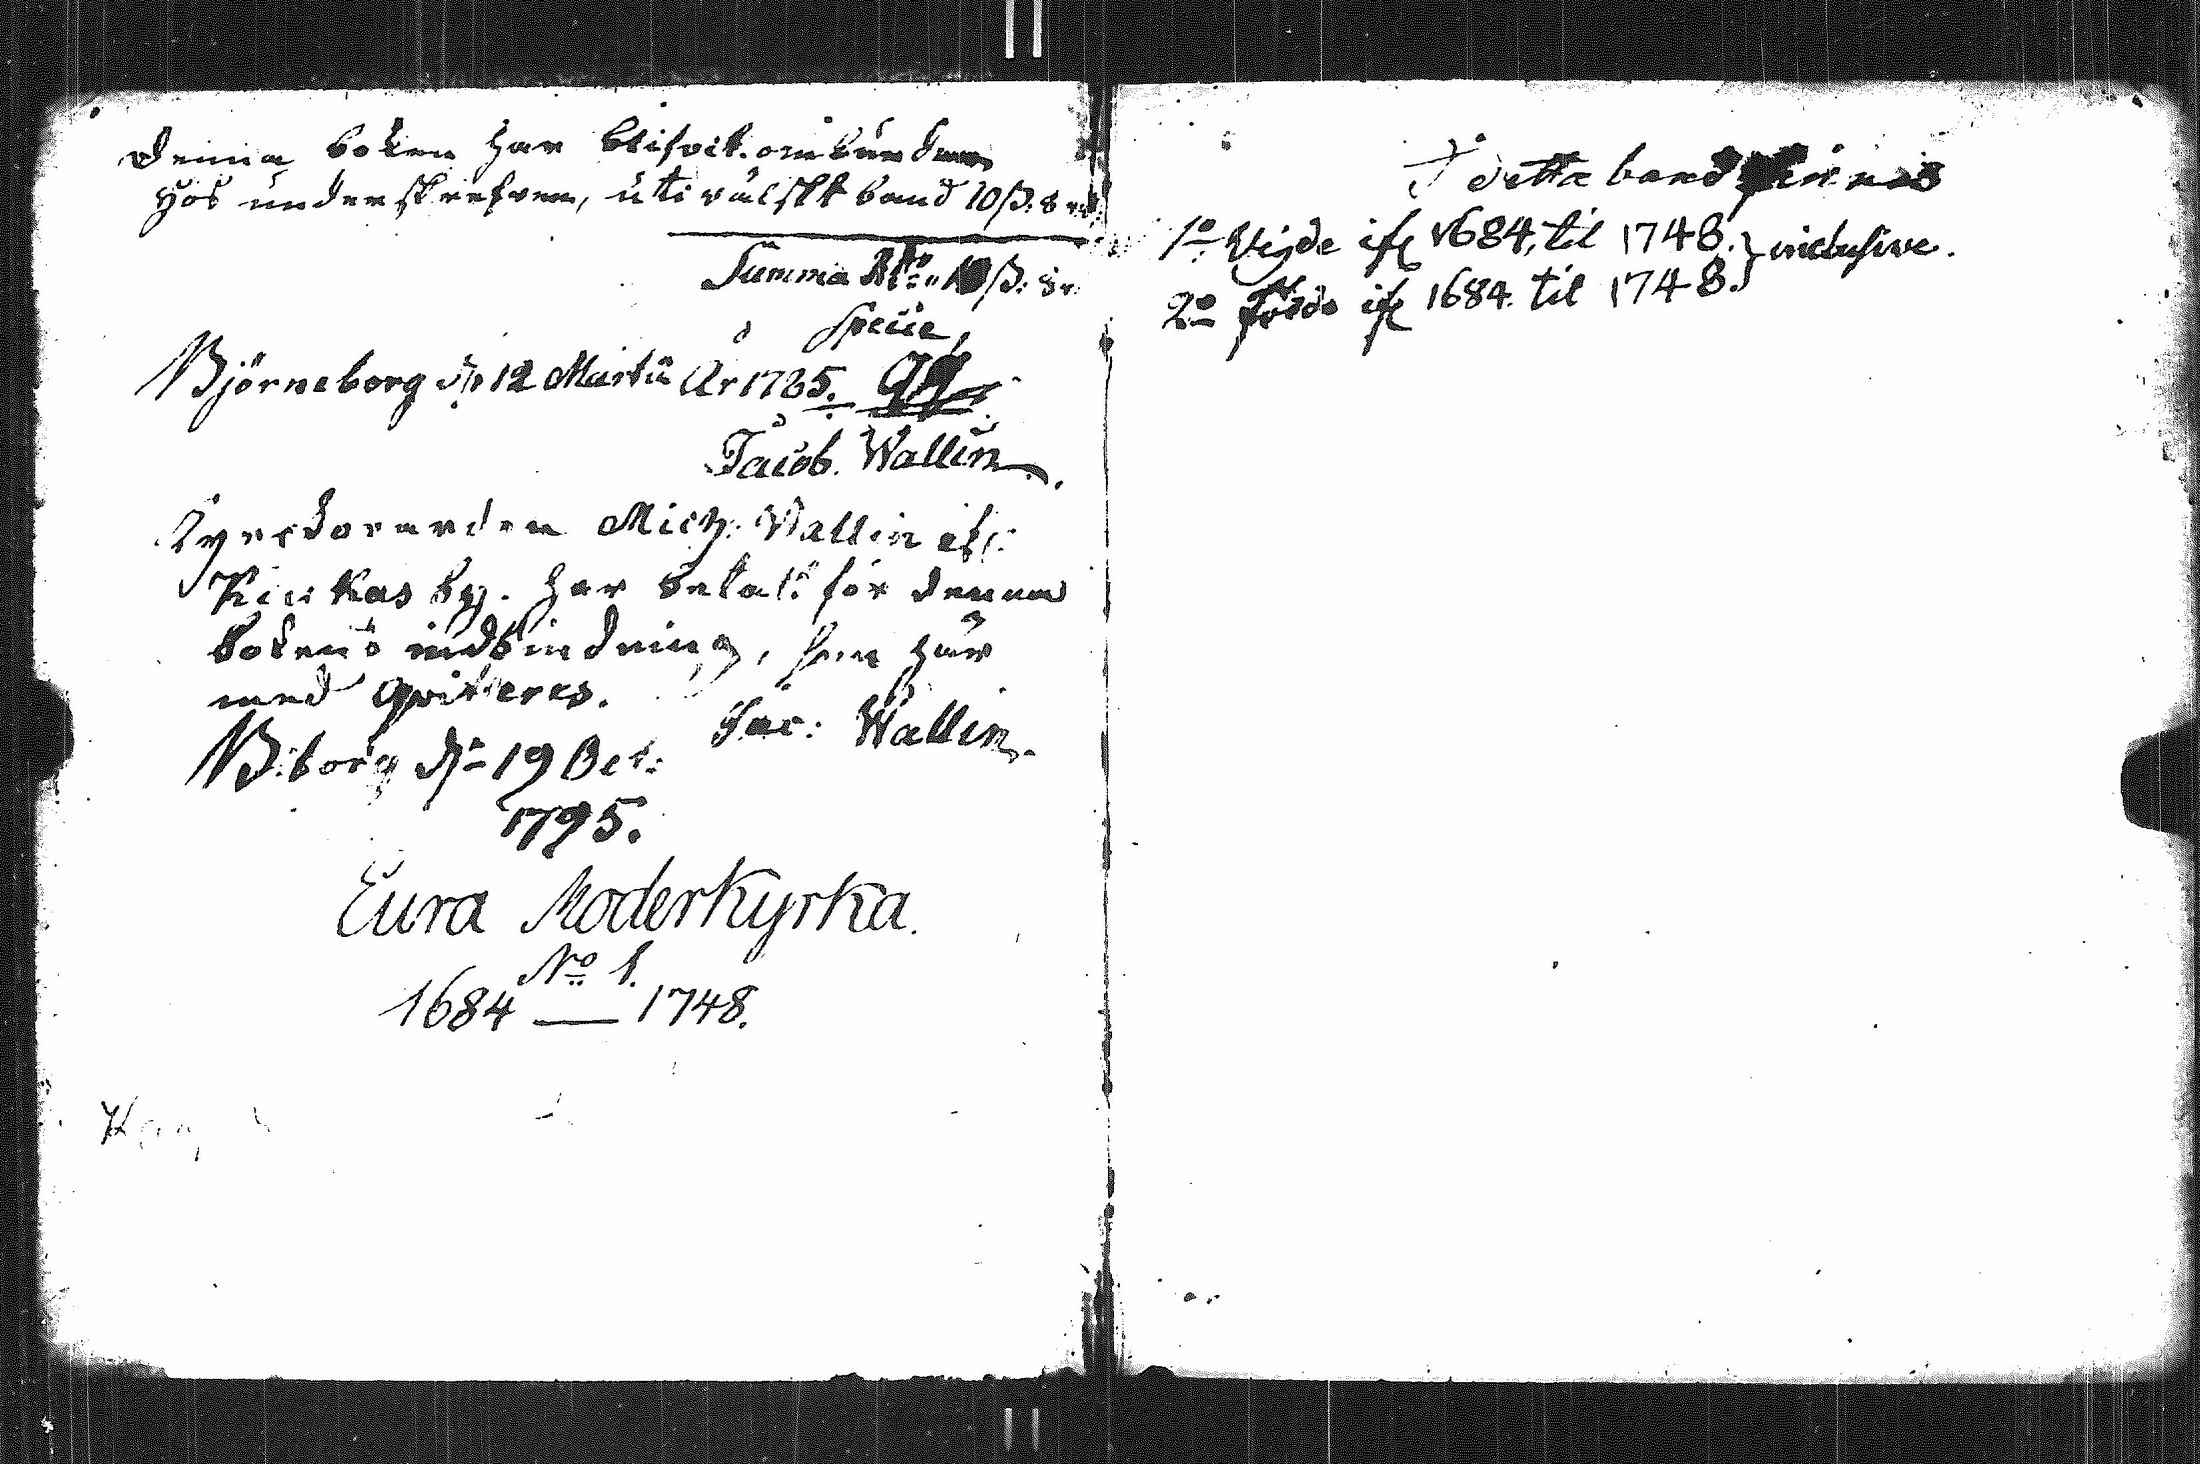 Denna boken har blifvit ombunden
hos underskrefven, uti välskt band 10 ß. 8
Summa ß. 8
Specie,
Björneborg 12 Martii År 1785.
Jacob. Wallin.
Kyrckovarden Mich: Wallin
Kiukas by. har betalt för denna
bokens indbindning, som här
med qvitteres.
Jac: Wallin.
B:borg dn 19 Oct:
1795.
Eura Moderkyrka.
No 1.
1684 — 1748.
I detta band finnes
1o Vigde ifr 1684, til 1748. } inclusive.
2o födde ifr 1684. til 1748.